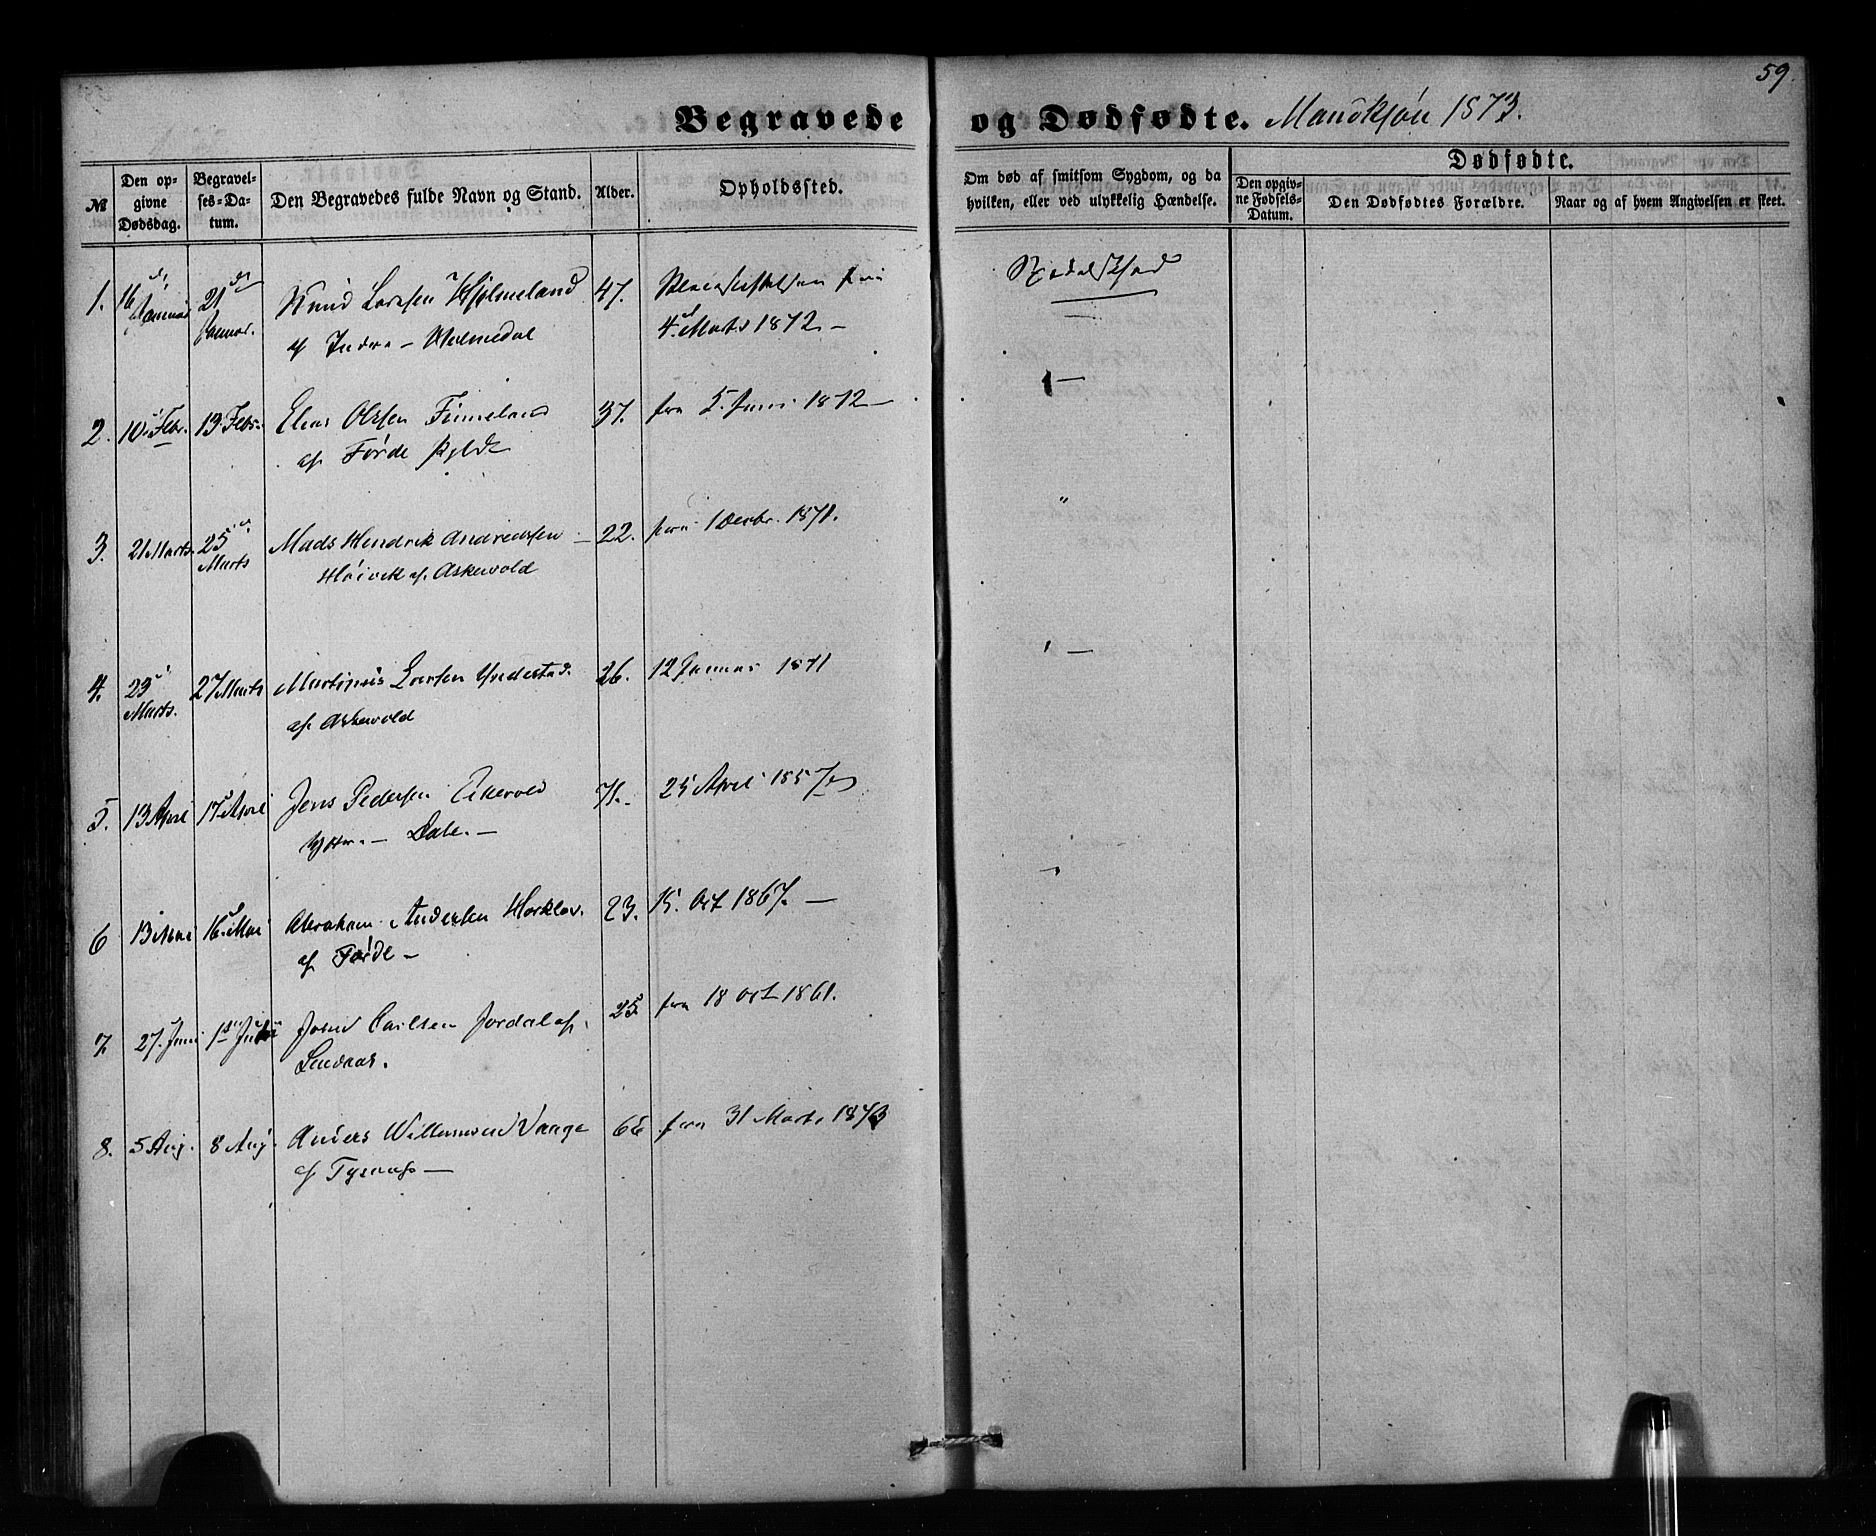 59.
Begravede og Dødfødte. Mandkjøn 1873.
Dødfødte.
№
Den opgivne Dødsdag.
Begravelses-Datum.
Den Begravedes fulde Navn og Stand.
Alder.
Opholdssted.
Om død af smitsom Sygdom, og da hvilken, eller ved ulykkelig Hændelse.
Den opgivne Fødsels-Datum.
Den Dødfødtes Forældre.
Naar og af hvem Angivelsen er skeet.
1. 16 Januar 21 Januar. Knud Larssen Hjelmeland 47. Pleiestiftelsen fra Spedalskhed
af Indre - Holmedal 4. Marts 1872 -
2. 10 Febr. 13 Febr. Elias Olssen Fimeland 37. fra 5. Juni 1872 - " -
af Førde
3. 21 Marts 25 Marts Mads Hendrik Andreassen - 22. fra 1 Decbr. 1871. "
Høivik af Askevold
4. 23 Marts. 27 Marts Martinus Larsen Yndestad. 26. 12 Januar 1871 " -
af Askevold
5. 13 April 17 April Jens Pedersen 71. 25 April 1857
Yttre - Dale. -
6 13 Mai 16 Mai Abraham Andersen 23. 15. Oct 1867. - "
af Førde -
7. 27. Juni 1ste Juli Carlsen Jordal af 25. fra 18 Oct 1861.
Lindaas.
8. 5 Aug. 8 Aug. Anders Vaage 66 fra 31 Marts 1873
af Tysnæs -